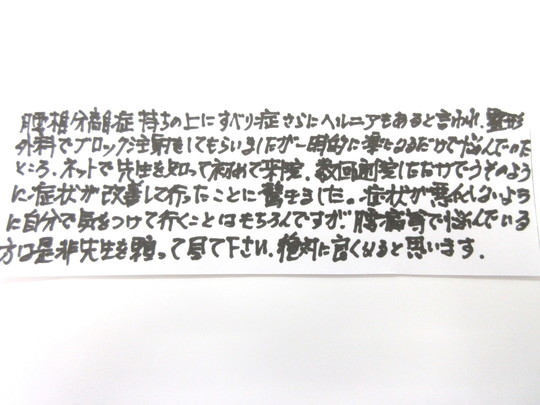 腰椎分離症持ちの上にすべり症さらにヘルニアもあると言われ、整形
外科でブロック注射をしてもらいましたが一時的に楽になるだけで悩んでいた
ところ、ネットで先生を知って初めて来院。数回通院しただけでうそのよう
に症状が改善して行ったことに驚きました。症状が悪化しないよう
に自分で気をつけて行くことはもちろんですが、腰痛等で悩んでいる
方は是非先生を頼って見て下さい。絶対に良くなると思います。